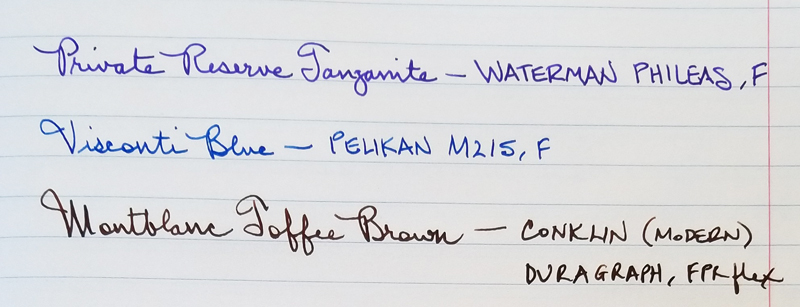 Private Reserve Tanzanite — WATERMAN PHILEAS, F
Visconti Blue — PELIKAN M215, F
Montblanc Toffee Brown — CONKLIN (MODERN)
DURAGRAPH, FPR flex